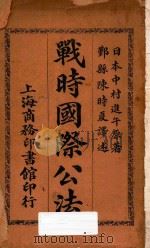 日本中村進午衞著
鄞縣陳時夏譯述
戰時國際公法
上海商務印書館印行